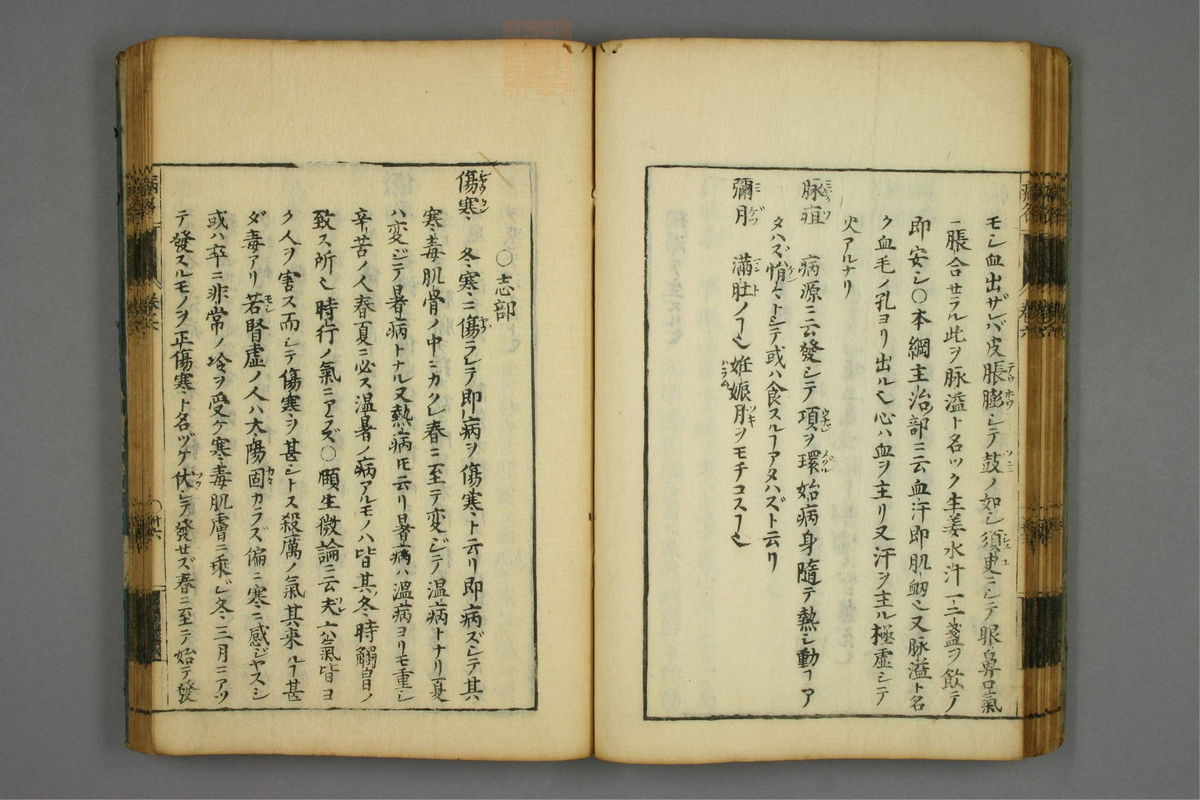 モシ血出ザレバ皮脹膨シテ鼓ノ如シ須臾ニシテ眼鼻口氣
一脹合セラル此ヲ脉溢ト名ツク生姜水汁一二盞ヲ飲テ
即安シ〇本綱主治部ニ云血汗即肌衂也又脉溢ト名
ク血毛ノ孔ヨリ出ル也心ハ血ヲ主リ又汗ヲ主ル極虚シテ
火アルナリ
脉疽 病源ニ云發シテ項ヲ環始病身隨テ熱シ動ヿア
タハズ悄々トシテ或ハ食スルヿアタハズト云リ
彌月 滿肚ノヿ也妊娠月ヲモチコスヿ也
〇志部
傷寒 冬寒ニ傷ラレテ即病ヲ傷寒ト云リ即病ズシテ其
寒毒肌骨ノ中ニカクレ春ニ至テ変ジテ温病トナリ夏
ハ変ジテ暑病トナル又熱病トモ云リ暑病ハ温病ヨリモ重シ
辛苦ノ人春夏ニ必ス温暑ノ病アルモノハ皆其冬時觸冒ノ
致ス所也時行ノ氣ニアラズ〇頤生微論ニ云夫六氣皆ヨ
ク人ヲ害ス而シテ傷寒ヲ甚シトス殺厲ノ氣其来ルヿ甚
ダ毒アリ若腎虚ノ人ハ太陽固カラズ偏ニ寒ニ感ジヤスシ
或ハ卒ニ非常ノ冷ヲ受ケ寒毒肌膚ニ乘ジ冬三月ニアツ
テ發スルモノヲ正傷寒ト名ヅケ伏シテ發セズ春ニ至テ始テ發
卷六
卷六
廿六